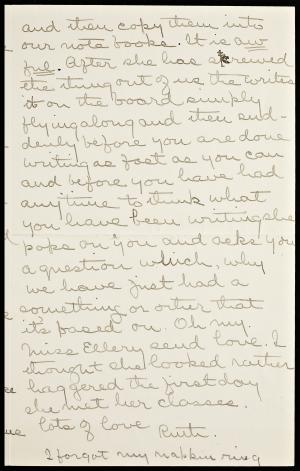 and then copy them into
our note books. It is aw
ful. After she has screwed
the thing out of us she writes
it on the board simply
flying along and then sud-
denly before you are done
writing as fast as you can
and before you have had
anytime to think what
you have been writing she
pops on you and asks you
a question which, why
we have just had a
something or other that
it's based on. Oh my.
Miss Ellery send love. I
thought she looked rather
haggered the first day
she met her classes.
lots of love
Ruth.
I forgot my napkin ring